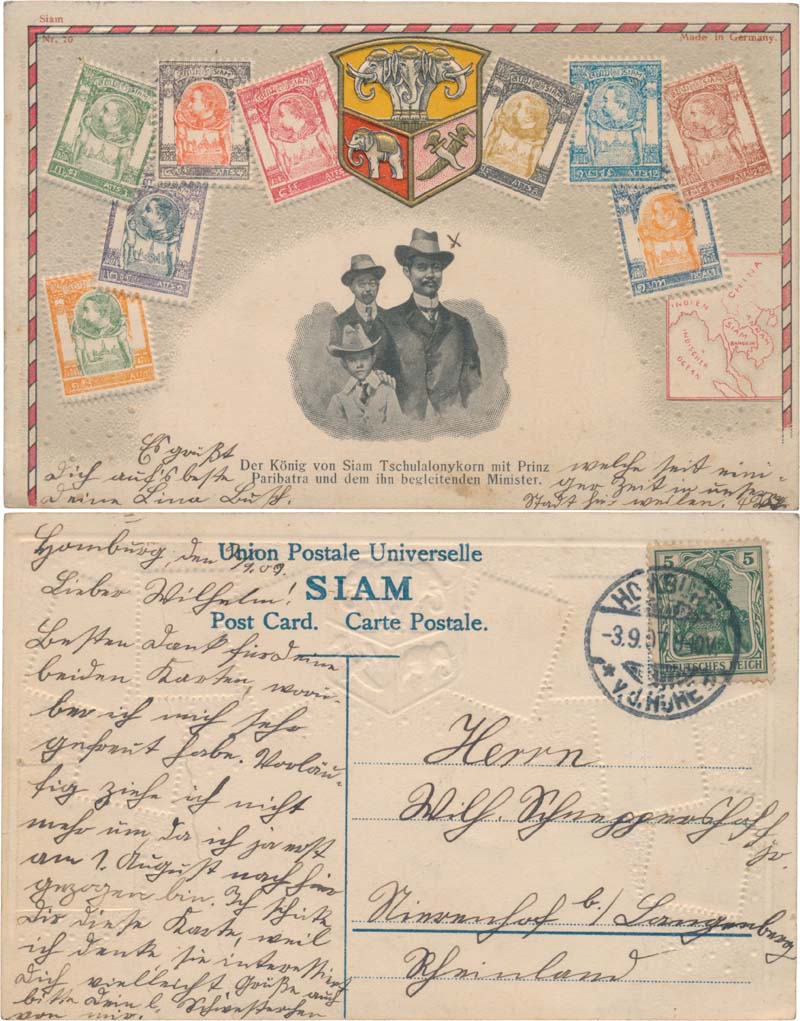 Siam
Nr. 70
Made in Germany.
SIAM
SIAM
SIAM
SIAM
SIAM
SIAM
CHINA
INDIEN
SIAM
BANGKOK
INDISCHER
OCEAN
Der König von Siam Tschulalonykorn mit Prinz
Paribatra und dem ihn begleitenden Minister.
Es grüßt
Dich auf's beste
deine Lina Busch.
welche seit eini-
ger Zeit in unser
Stadt hier weilen.
Union Postale Universelle
SIAM
Post Card. Carte Postale.
5 5
DEUTSCHES REICH
HOMBURG
-3.9.07. 9-10V.
* v.d. HÖHE
Homburg, den
Lieber Wilhelm!
Besten Dank für deine
beiden Karten, worü-
ber ich mich sehr
gefreut habe. Vorläu-
fig ziehe ich nicht
mehr um, da ich ja erst
am 1. August nach hier
gezogen bin. Ich schicke
Dir diese Karte, weil
ich denke sie interessiert
Dich vielleicht Grüße auch
bitte Dein l. Schwesterchen
von mir.
Herrn
Wilh. Schneppershoff
jr.
Nierenhof b/ Langenberg
Rheinland